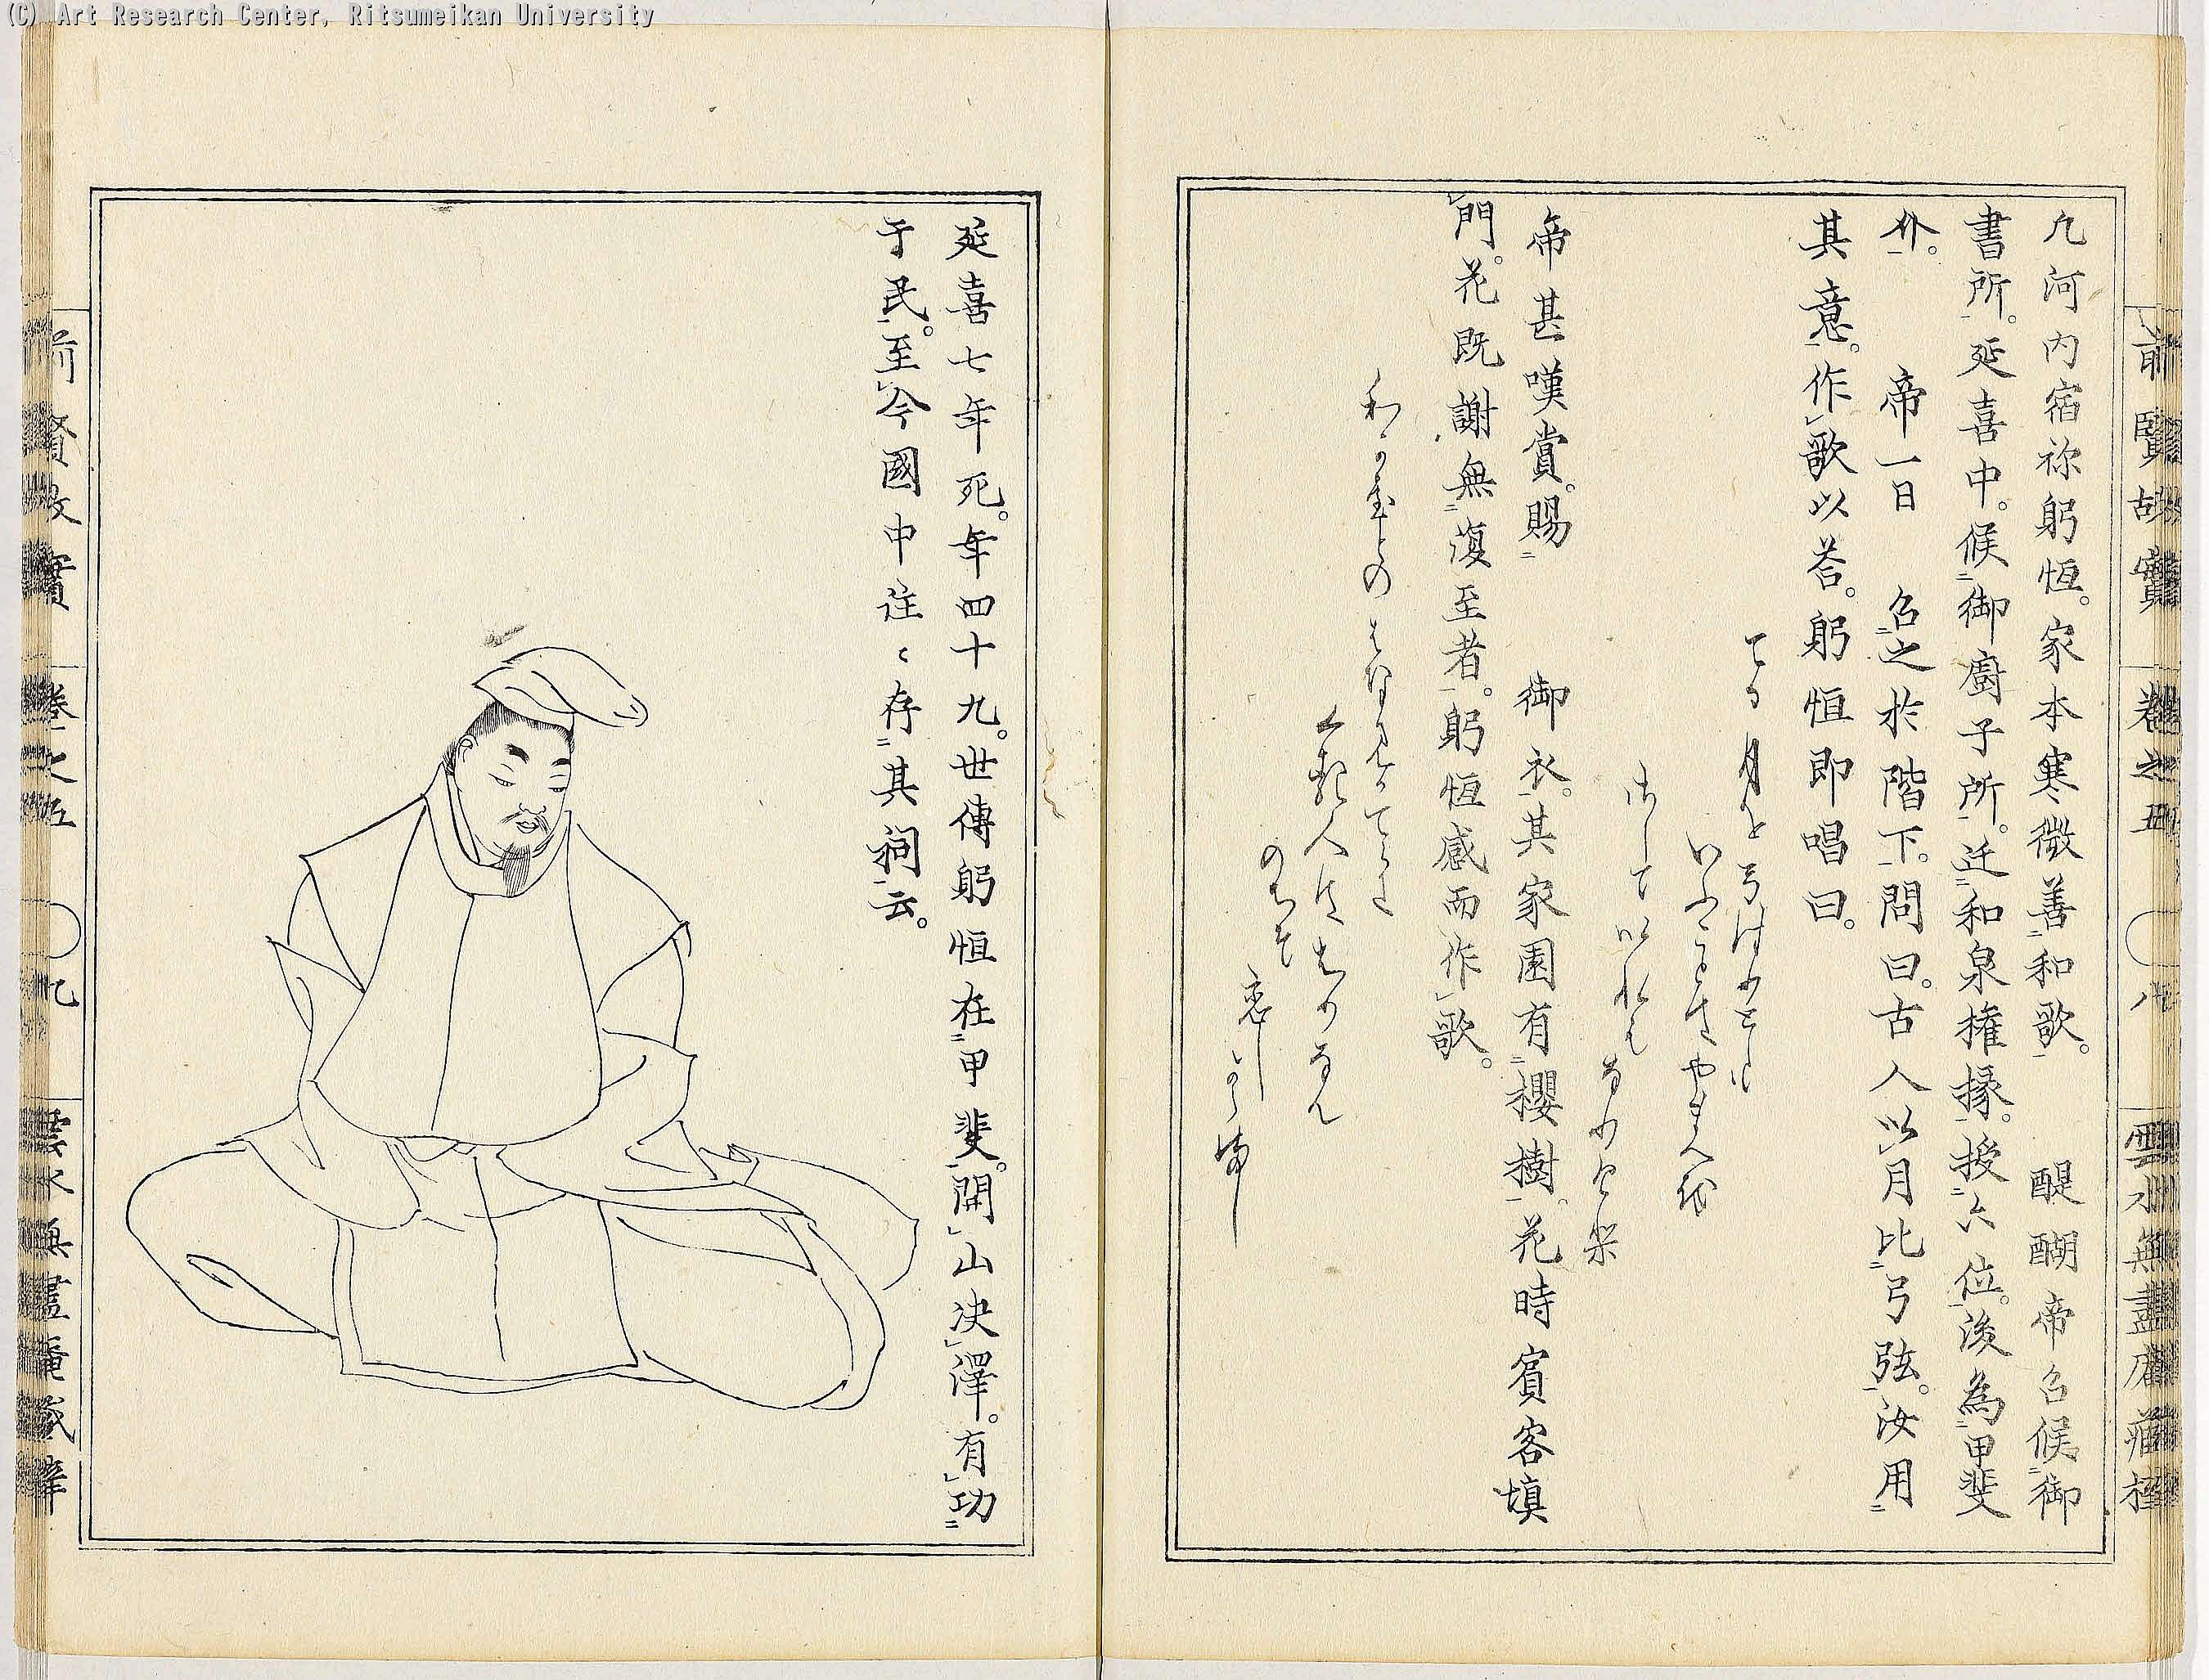 (C) Art Research Center, Ritsumeikan University
前賢故實 巻之五 八 雲水無盡庵藏梓
凢河内宿祢躬恒。家本寒微善和歌。 醍醐帝召候御
書所。延喜中。候御廚子所。迁和泉權掾。授六位。後為甲斐
介。 帝一日 召之於階下。問曰。古人以月比弓弦。汝用
其意。作歌以荅。躬恒即唱曰。
てる月を弓はりとしも
いふことはやまへを
さしていれはなりけり
帝甚嘆賞。賜 御衣。其家園有櫻樹。花時賓客填
門。花既謝無復至者。躬恒感而作歌。
わかやとのはなみかてらに
くる人はちりなん
のちそ
恋しかるへき
延喜七年死。年四十九。世傳躬恒在甲斐。開山决澤。有功
于民。至今國中往〻存其祠云。
前賢故實 巻之五 九 雲水無盡庵藏梓